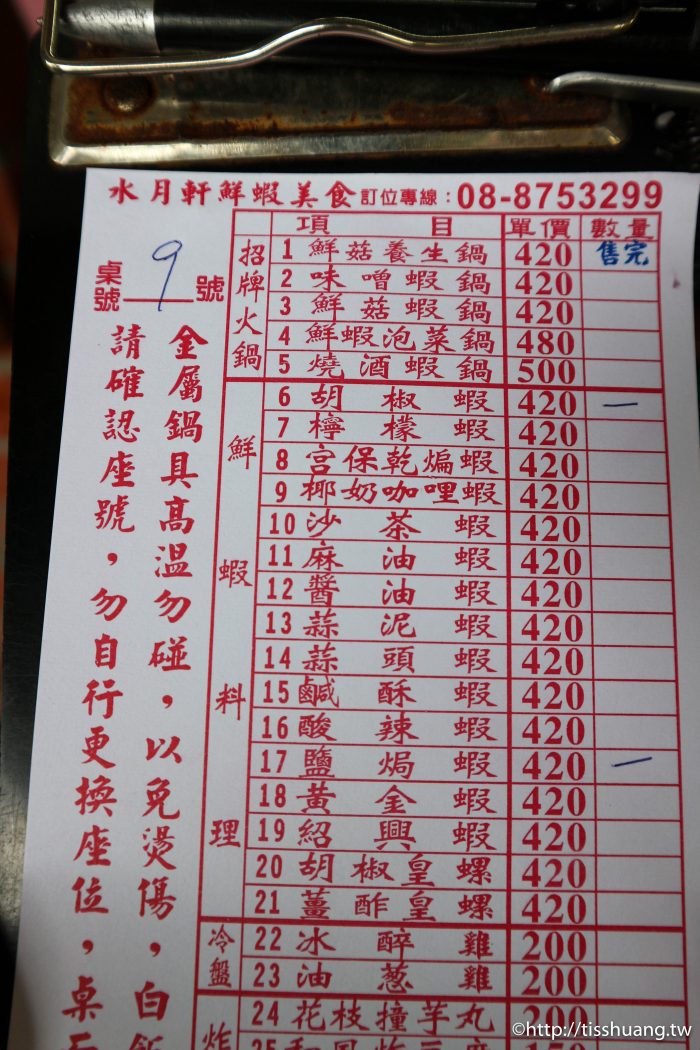 水月軒鮮蝦美食 訂位專線：08-8753299
桌號 9 號
請確認座號，勿自行更換座位，桌
金屬鍋具高溫勿碰，以免燙傷，白飯
項目 單價 數量
招牌火鍋
1 鮮菇養生鍋 420 售完
2 味噌蝦鍋 420
3 鮮菇蝦鍋 420
4 鮮蝦泡菜鍋 480
5 燒酒蝦鍋 500
鮮蝦料理
6 胡椒蝦 420 一
7 檸檬蝦 420
8 宮保乾煸蝦 420
9 椰奶咖哩蝦 420
10 沙茶蝦 420
11 麻油蝦 420
12 醬油蝦 420
13 蒜泥蝦 420
14 蒜頭蝦 420
15 鹹酥蝦 420
16 酸辣蝦 420
17 鹽焗蝦 420 一
18 黃金蝦 420
19 紹興蝦 420
20 胡椒皇螺 420
21 薑酢皇螺 420
冷盤
22 冰醉雞 200
23 油蔥雞 200
炸
24 花枝撞芋丸 200
25 和風炸豆腐
©http://tisshuang.tw